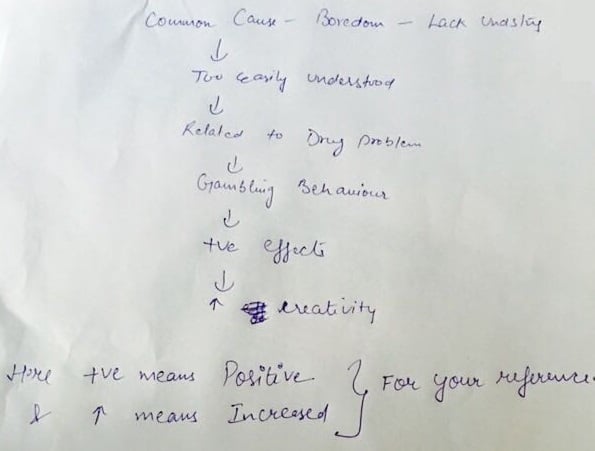 Common Cause - Boredom - Lack
↓
Too easily understood
↓
Related to Drug problem
↓
Gambling Behaviour
↓
+ve effects
↓
↑ creativity
Here +ve means Positive } For your reference.
& ↑ means Increased